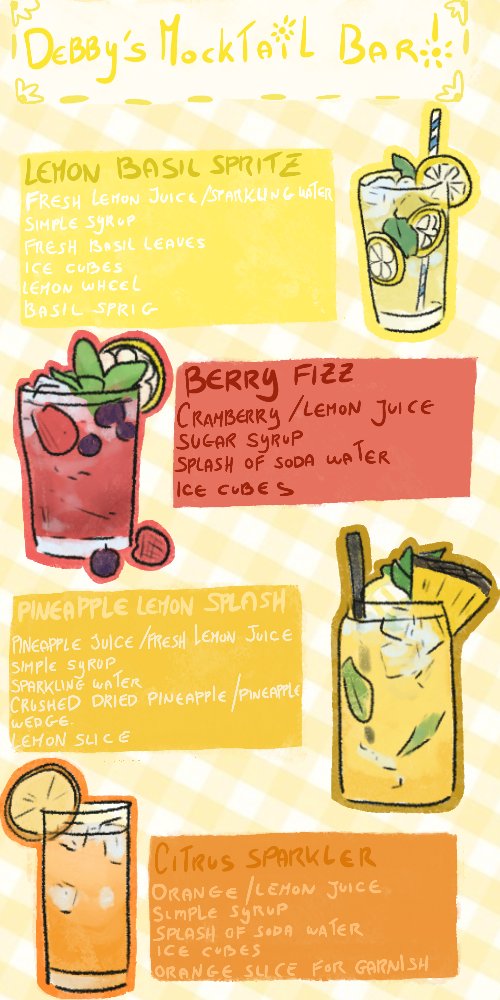 Debby's Mocktail Bar!
Lemon Basil Spritz
Fresh lemon juice/sparkling water
Simple syrup
Fresh basil leaves
Ice cubes
Lemon wheel
Basil sprig
Berry Fizz
Cramberry/lemon juice
Sugar syrup
Splash of soda water
Ice cubes
Pineapple Lemon Splash
Pineapple juice/fresh lemon juice
Simple syrup
Sparkling water
Crushed dried pineapple/pineapple
wedge.
Lemon slice
Citrus Sparkler
Orange/lemon juice
Simple syrup
Splash of soda water
Ice cubes
Orange slice for garnish